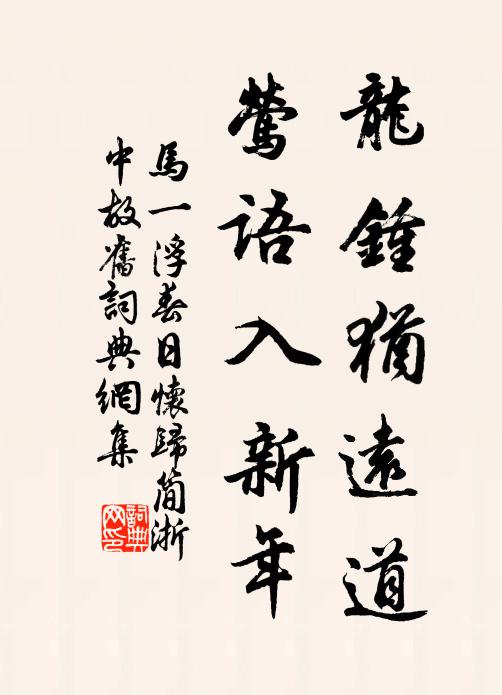 龍鍾猶遠道
鶯語入新年
馬一浮春日懷歸簡浙
中故舊詞典網集
詞典網印